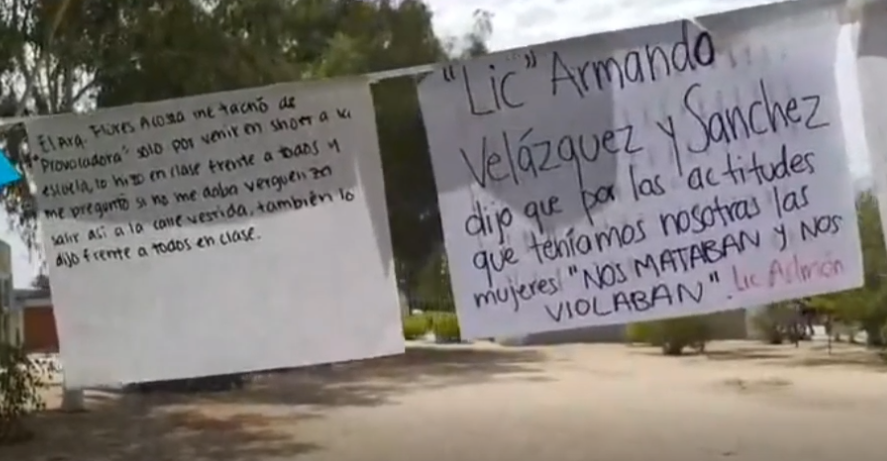 El Arq. Flores Acosta me tachó de
"Provocadora" solo por venir en short a la
escuela, lo hizo en clase frente a todos y
me preguntó si no me daba vergüenza
salir así a la calle vestida, también lo
dijo frente a todos en clase.
"Lic" Armando
Velázquez y Sanchez
dijo que por las actitudes
que teníamos nosotras las
mujeres "NOS MATABAN Y NOS
VIOLABAN". Lic Admón